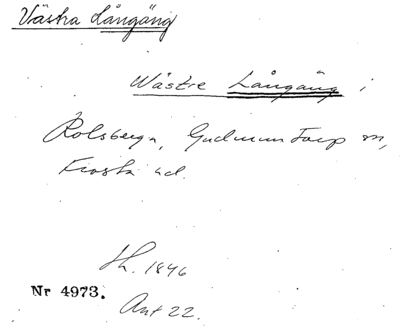 Västra Långäng
Wästre Långäng i
Rolsberga, Gudmuntorp sn,
Frosta hd.
Lh. 1846
Nr 4973.
Akt 22.